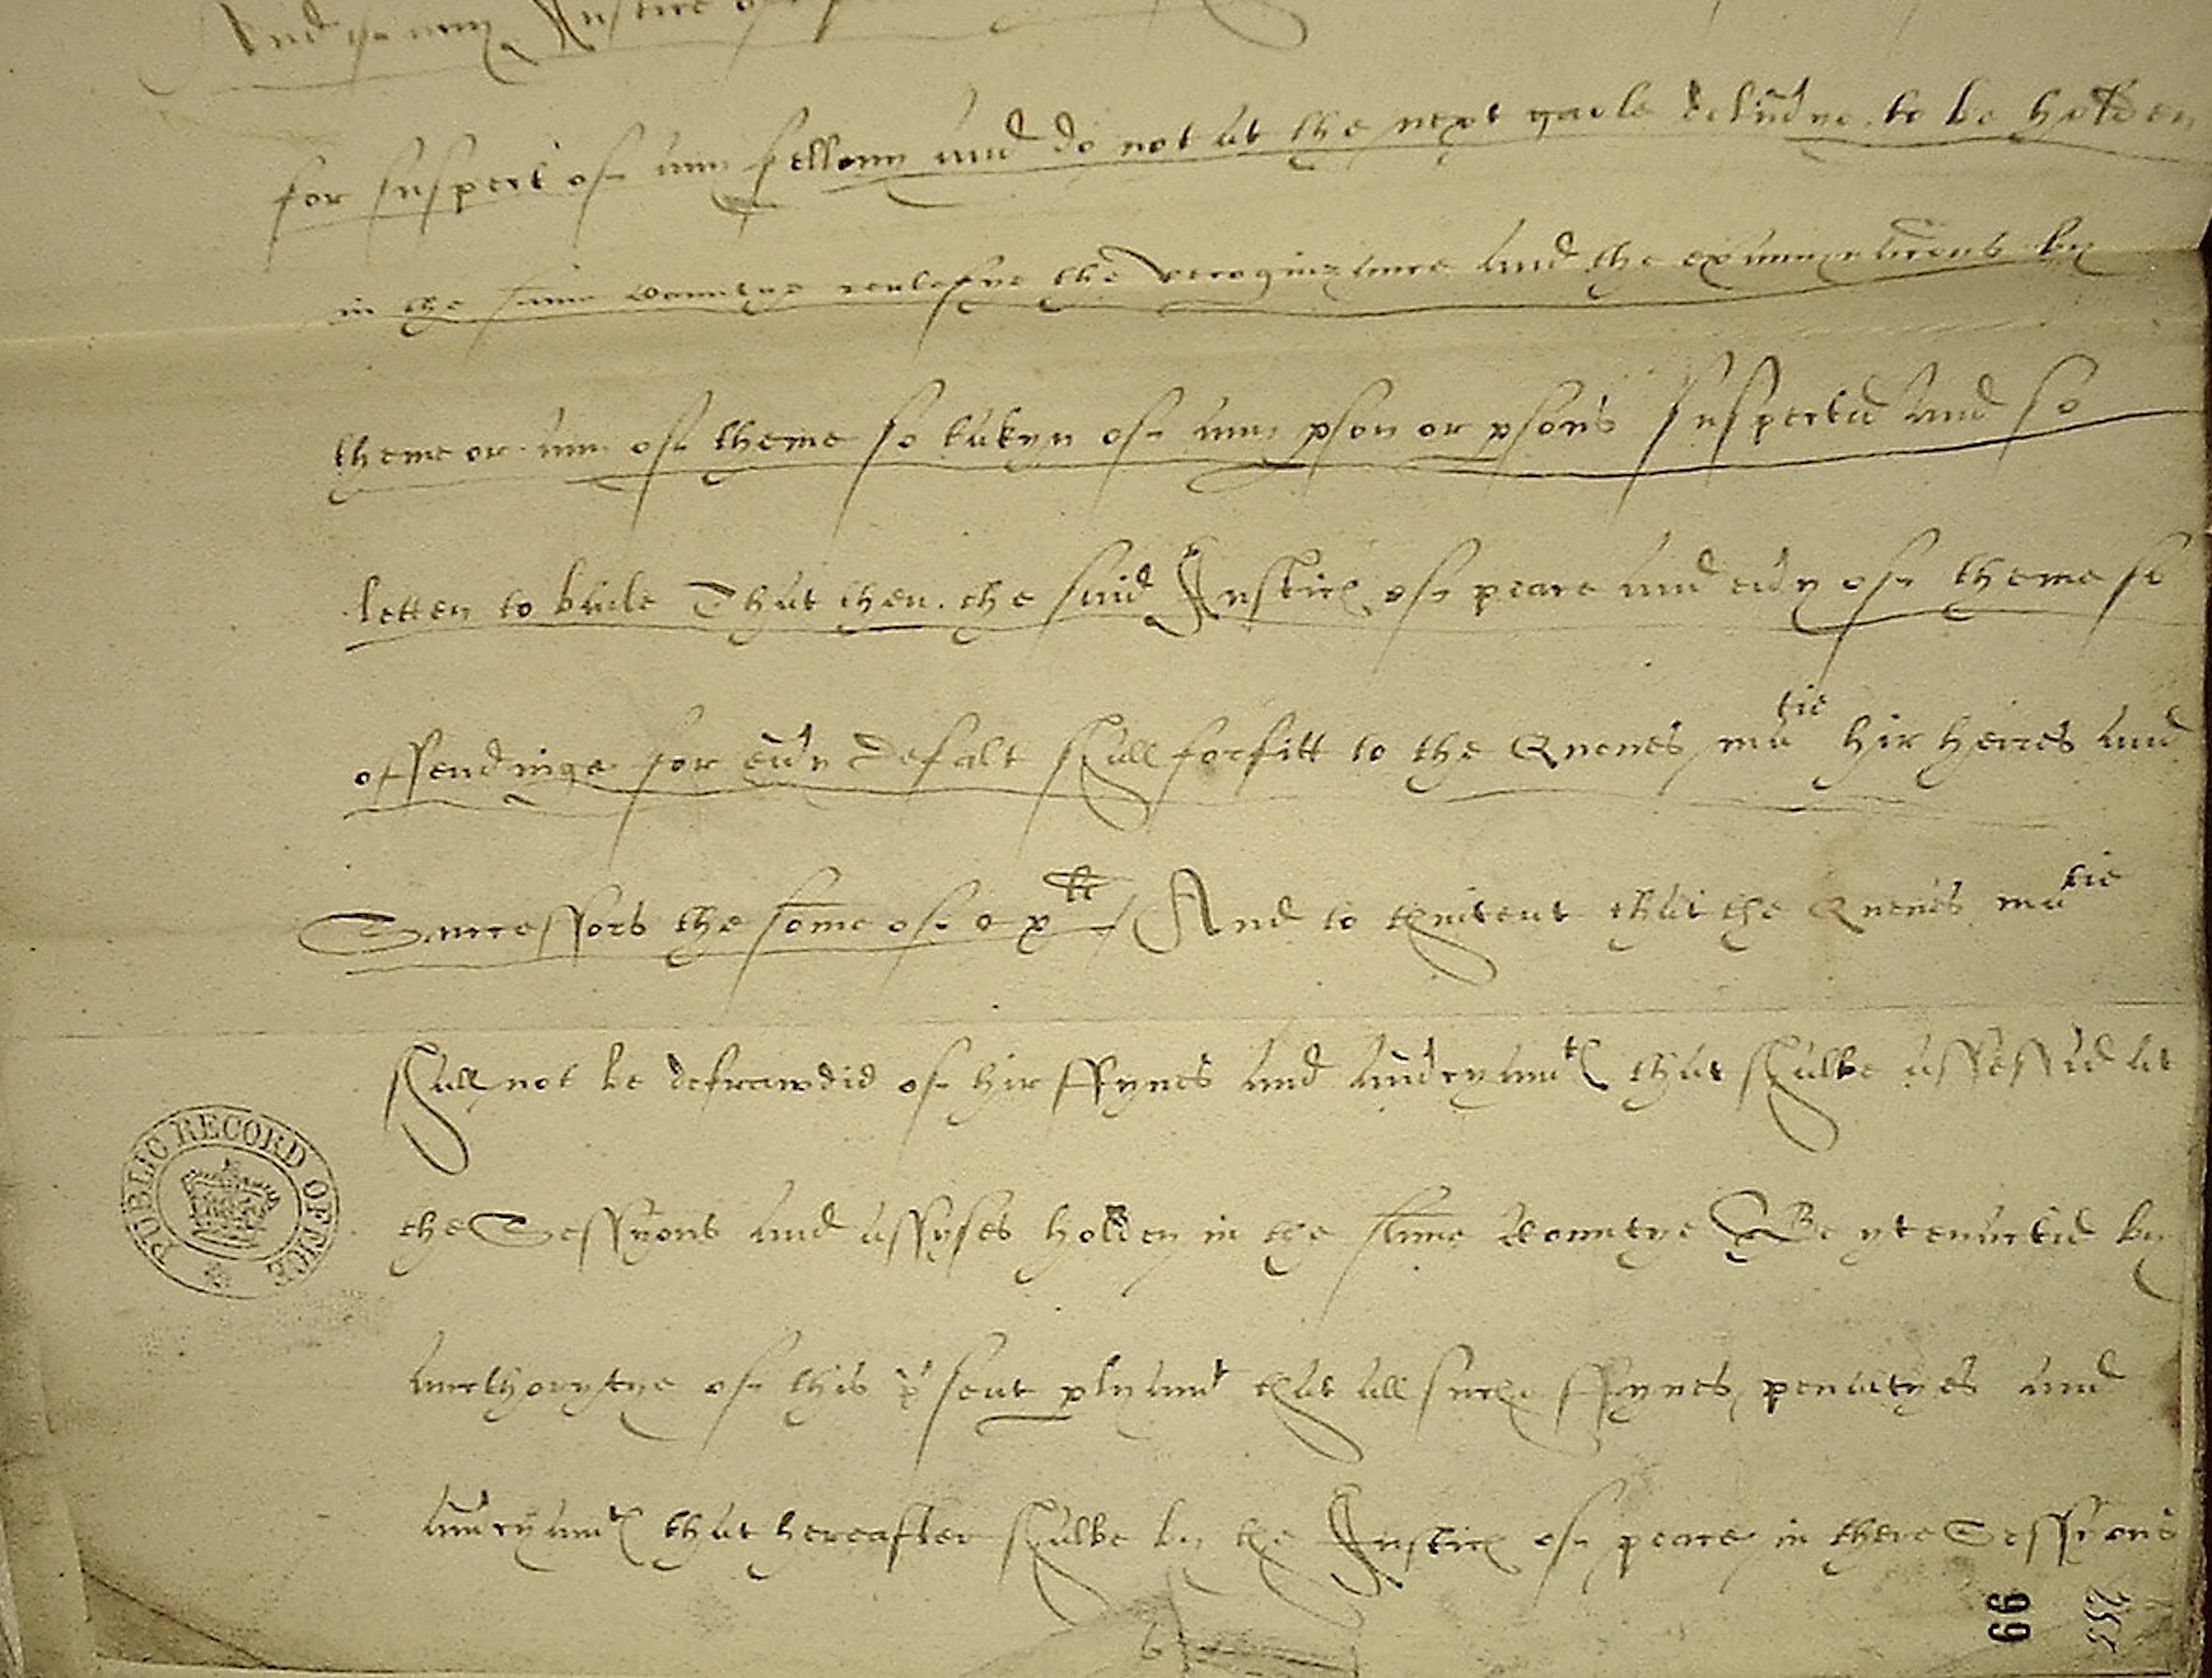 And yf any Justice of
for suspect of any fellony and do not at the next gaole deliũye to be holden
in the same Countye certefye the recognizance and the examynacons by
theme or any of theme so takyn of any pson or psons suspectid and so
letten to baile That then the said Justice of peace and eũy of theme so
offendinge for eũy defalt shall forfitt to the Quenes matie hir heires and
Successors the some of xli / And to thentent that the Quenes matie
shall not be defrawdid of hir ffynes and amẽcyamt that shalbe assessid at
the Sessyons and assyses holden in the same Countye Be yt enactid by
aucthorytye of this psent plyamt that all suche ffynes penaltyes and
amẽcyamt that hereafter shalbe by the Justic of peace in there Sessyons
PUBLIC RECORD OFFICE
99
255